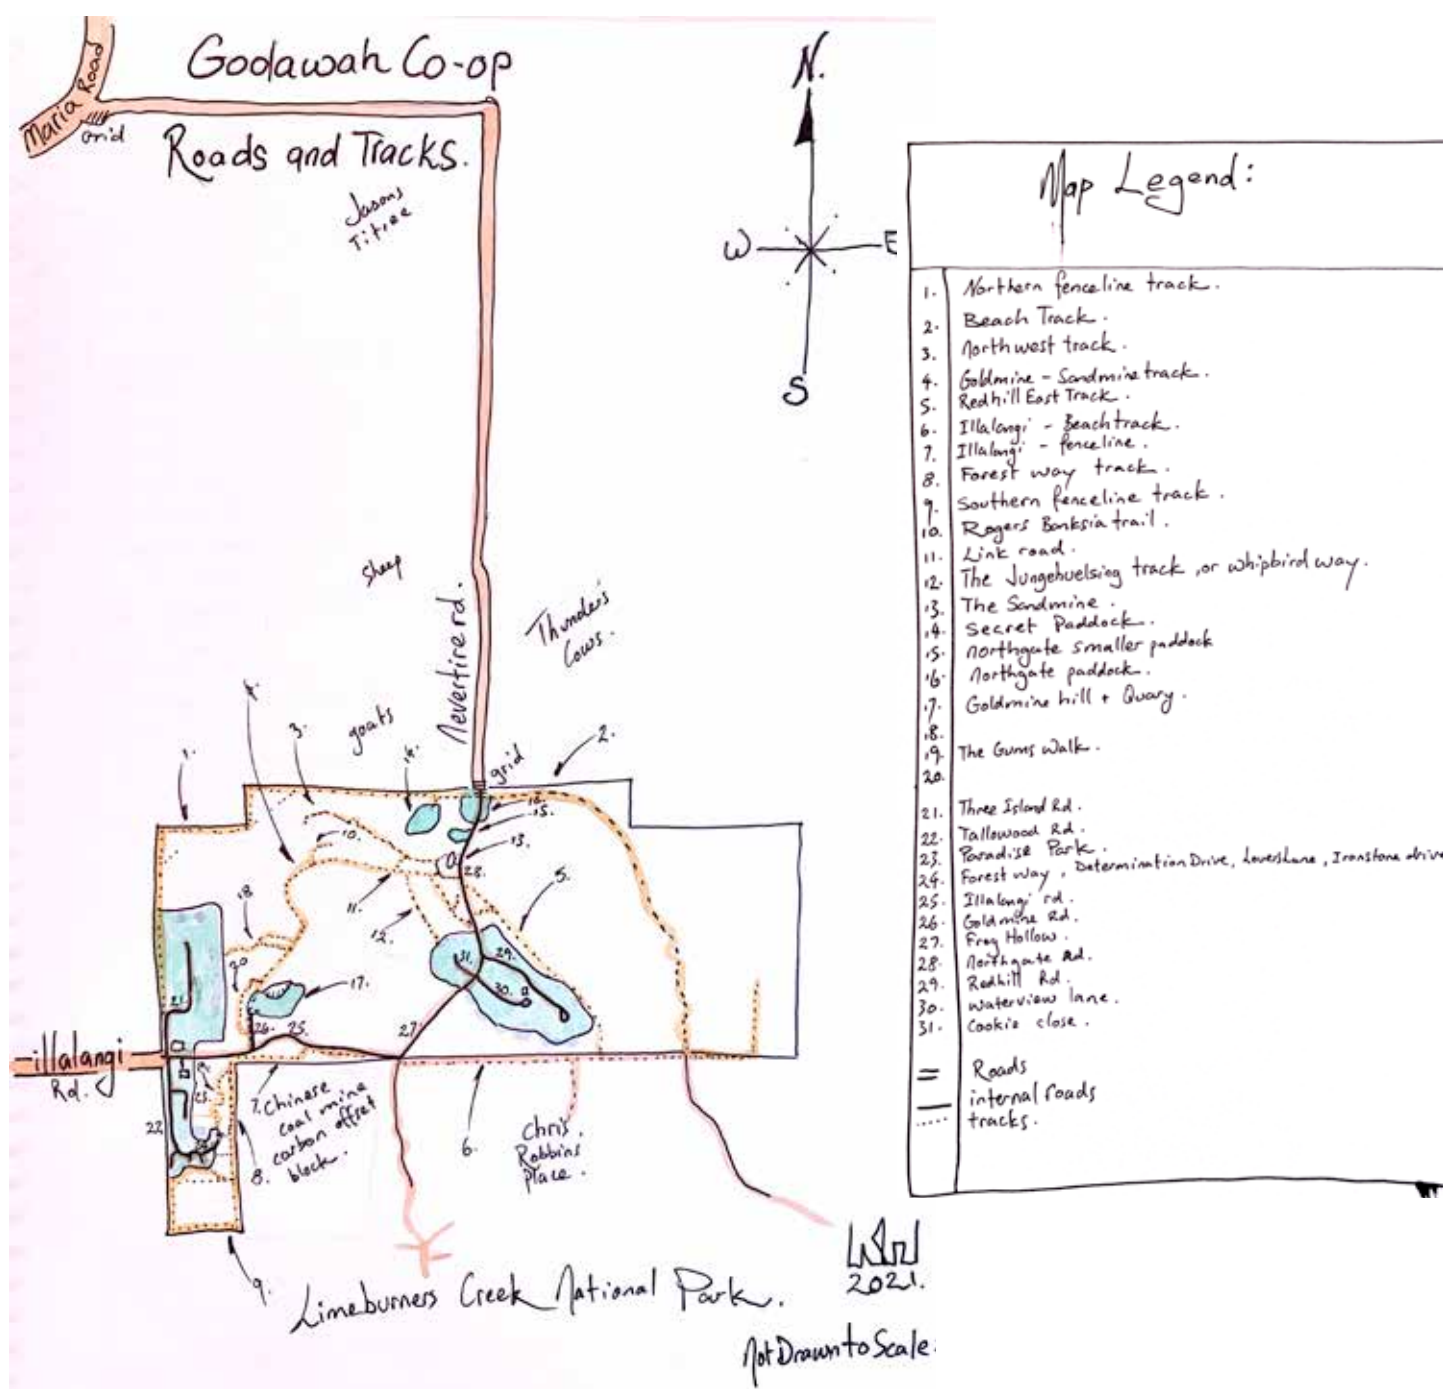 Goolawah Co-op
Roads and Tracks.
Maria Road
Grid
Jasons
Titree
N.
W
E
S
sheep
Nevertire rd.
Thunder's
Cows.
goats
grid
1.
3.
2.
14.
16.
15.
13.
10.
28.
11.
12.
5.
18.
20
17.
21
31.
29.
30.
26.
25.
27.
illalangi
Rd.
22
23.
7. Chinese
coal mine
carbon offset
block.
8.
6.
Chris.
Robbins
Place.
9.
Limeburners Creek National Park.
KW
2021.
Not Drawn to Scale.
Map Legend:
1. Northern fenceline track.
2. Beach Track.
3. Northwest track.
4. Goldmine - Sandmine track.
5. Redhill East Track.
6. Illalangi - Beach track.
7. Illalangi - fenceline.
8. Forest way track.
9. Southern fenceline track.
10. Rogers Banksia trail.
11. Link road.
12. The Jungehuelsing track, or whipbird way.
13. The Sandmine.
14. Secret Paddock.
15. Northgate smaller paddock
16. Northgate paddock.
17. Goldmine hill + Quary.
18.
19. The Gums Walk.
20.
21. Three Island Rd.
22. Tallowood Rd.
23. Paradise Park.
24. Forest way, Determination Drive, Lovers Lane, Ironstone drive
25. Illalangi rd.
26. Goldmine Rd.
27. Frog Hollow.
28. Northgate Rd.
29. Redhill Rd.
30. waterview lane.
31. Cookie close.
Roads
internal roads
tracks.